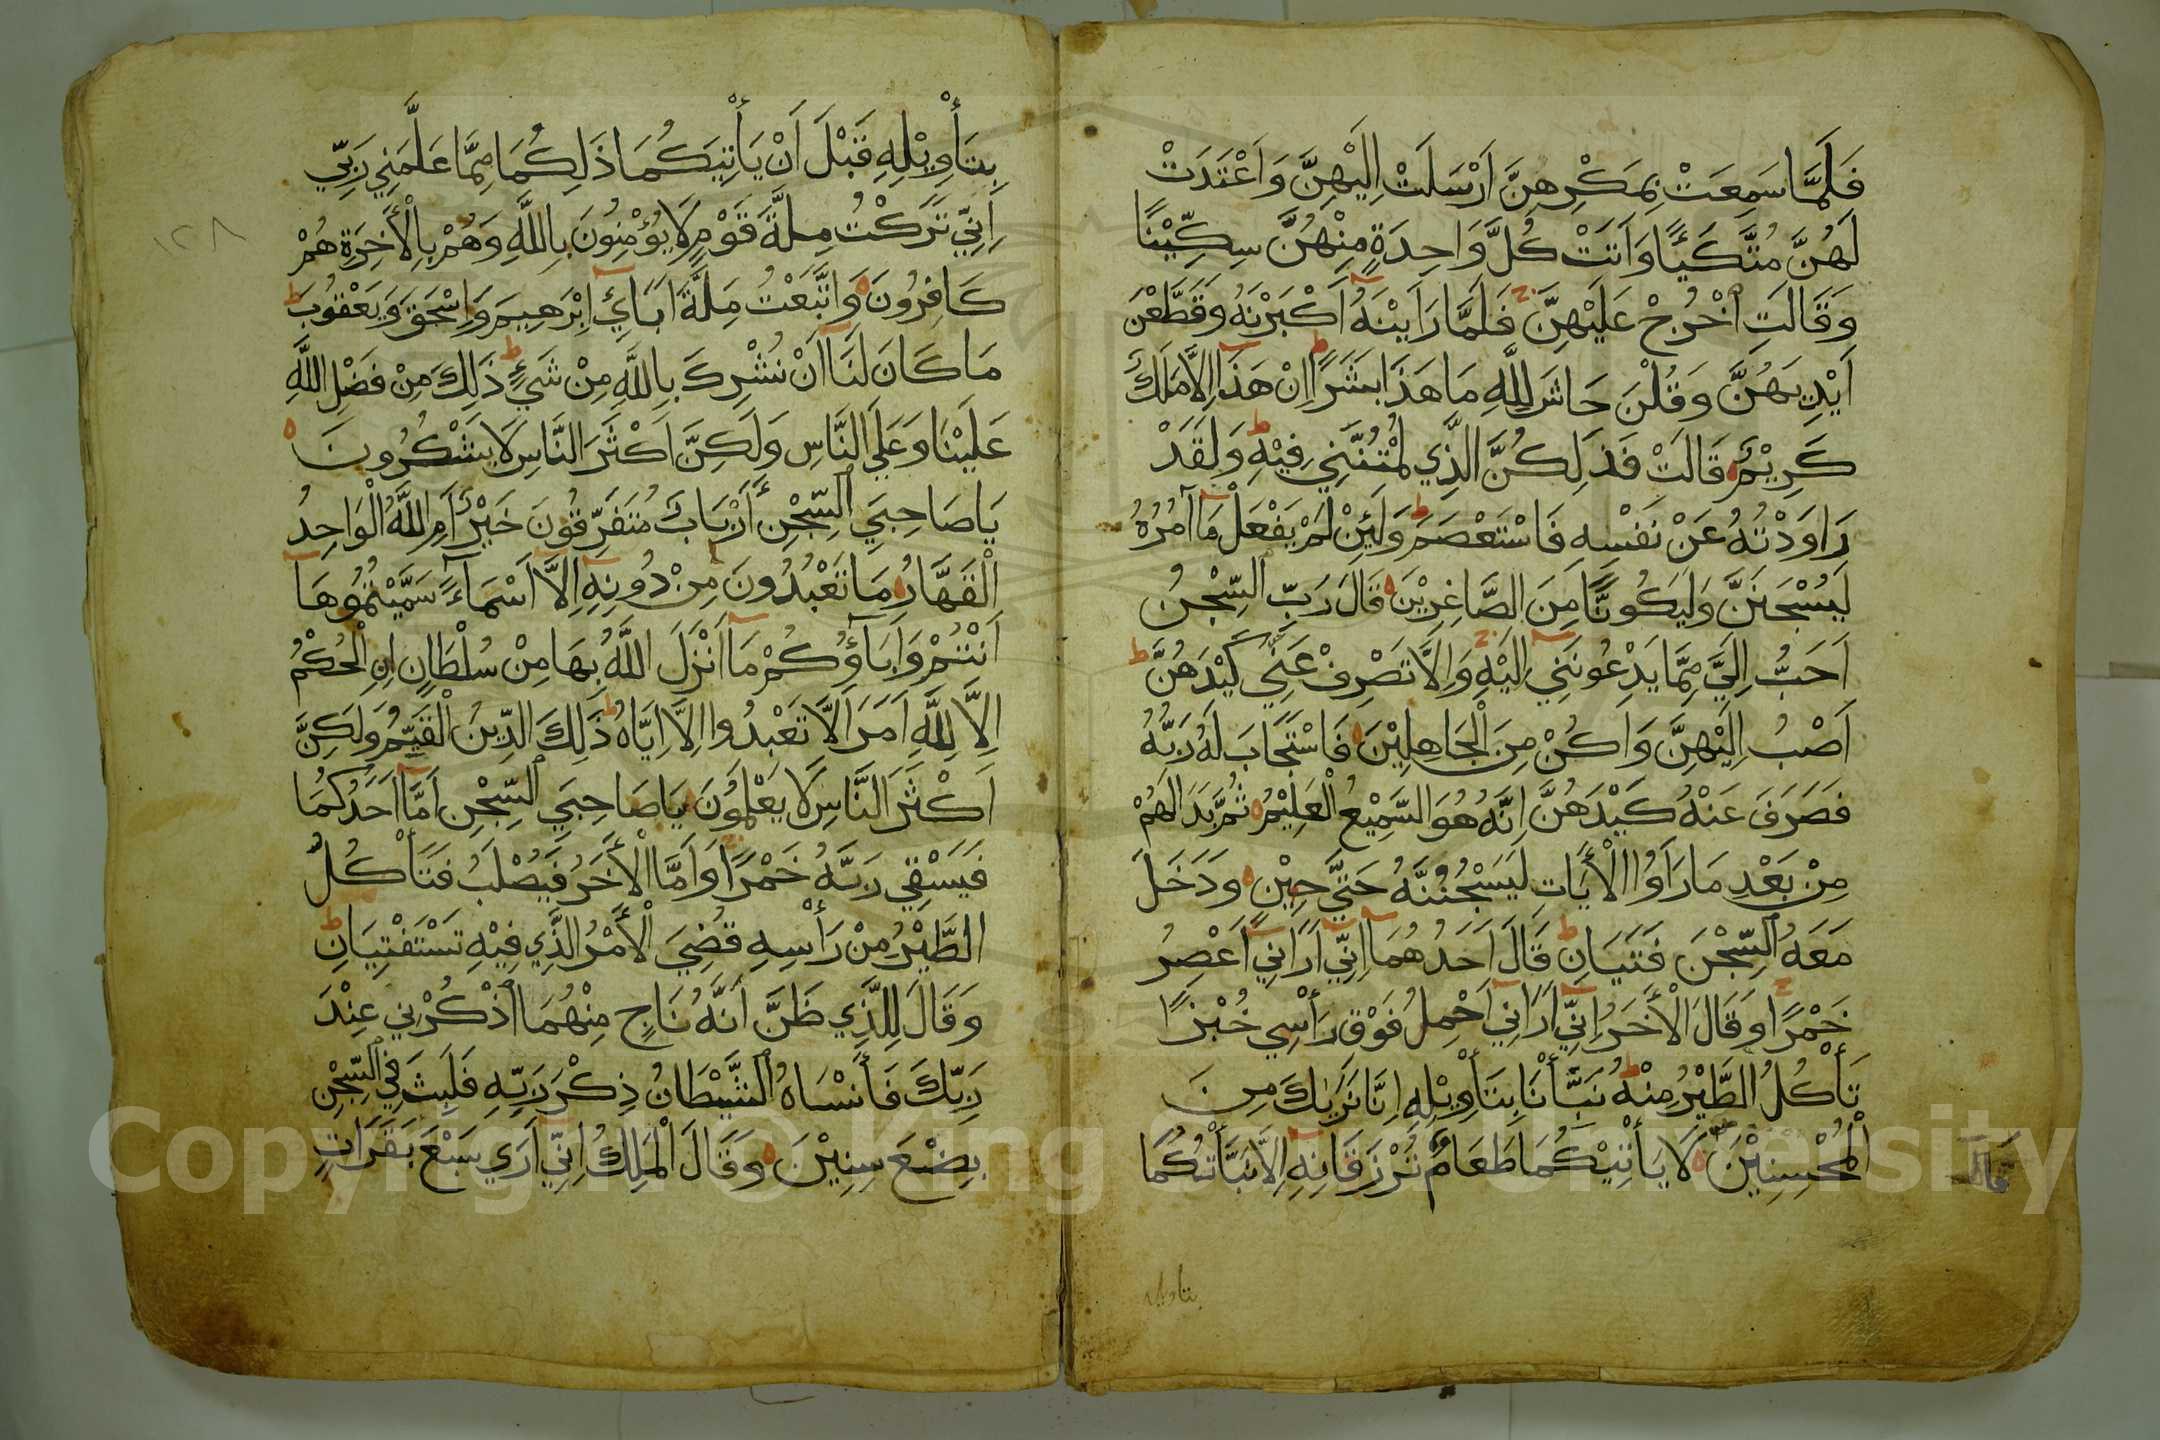 فَلَمَّا سَمِعَتْ بِمَكْرِهِنَّ اَرْسَلَتْ اِلَيْهِنَّ وَاَعْتَدَتْ
لَهُنَّ مُتَّكَئًا وَاَتَتْ كُلَّ وَاحِدَةٍ مِنْهُنَّ سِكِّيْنًا
وَقَالَتِ اخْرُجْ عَلَيْهِنَّ فَلَمَّا رَاَيْنَهُ اَكْبَرْنَهُ وَقَطَّعْنَ
اَيْدِيَهُنَّ وَقُلْنَ حَاشَ لِلَّهِ مَا هَذَا بَشَرًا اِنْ هَذَا اِلَّا مَلَكٌ
كَرِيْمٌ قَالَتْ فَذَلِكُنَّ الَّذِي لُمْتُنَّنِي فِيْهِ وَلَقَدْ
رَاوَدْتُهُ عَنْ نَفْسِهِ فَاسْتَعْصَمَ وَلَئِنْ لَمْ يَفْعَلْ مَا اٰمُرُهُ
لَيُسْجَنَنَّ وَلَيَكُونًا مِنَ الصَّاغِرِيْنَ قَالَ رَبِّ السِّجْنُ
اَحَبُّ اِلَيَّ مِمَّا يَدْعُونَنِي اِلَيْهِ وَاِلَّا تَصْرِفْ عَنِّي كَيْدَهُنَّ
اَصْبُ اِلَيْهِنَّ وَاَكُنْ مِنَ الْجَاهِلِيْنَ فَاسْتَجَابَ لَهُ رَبُّهُ
فَصَرَفَ عَنْهُ كَيْدَهُنَّ اِنَّهُ هُوَ السَّمِيْعُ الْعَلِيْمُ ثُمَّ بَدَا لَهُمْ
مِنْ بَعْدِ مَا رَاَوُا الْأَيَاتِ لَيَسْجُنُنَّهُ حَتَّى حِيْنٍ وَدَخَلَ
مَعَهُ السِّجْنَ فَتَيَانِ قَالَ اَحَدُهُمَا اِنِّي اَرَانِي اَعْصِرُ
خَمْرًا وَقَالَ الْأَخَرُ اِنِّي اَرَانِي اَحْمِلُ فَوْقَ رَأْسِي خُبْزًا
تَأْكُلُ الطَّيْرُ مِنْهُ نَبِّأْنَا بِتَأْوِيْلِهِ اِنَّا نَرَيٰكَ مِنَ
الْمُحْسِنِيْنَ لَا يَأْتِيْكُمَا طَعَامٌ تُرْزَقَانِهِ اِلَّا نَبَّأْتُكُمَا
قال
بتاويله
بِتَأْوِيْلِهِ قَبْلَ اَنْ يَأْتِيَكُمَا ذَلِكُمَا مِمَّا عَلَّمَنِي رَبِّي
اِنِّي تَرَكْتُ مِلَّةَ قَوْمٍ لَا يُؤْمِنُونَ بِاللَّهِ وَهُمْ بِالْأَخِرَةِ هُمْ
كَافِرُونَ وَاتَّبَعْتُ مِلَّةَ اَبَائِي اِبْرَهِيمَ وَاِسْحَقَ وَيَعْقُوبَ
مَا كَانَ لَنَا اَنْ نُشْرِكَ بِاللَّهِ مِنْ شَيْءٍ ذَلِكَ مِنْ فَضْلِ اللَّهِ
عَلَيْنَا وَعَلَي النَّاسِ وَلَكِنَّ اَكْثَرَ النَّاسِ لَا يَشْكُرُونَ
يَا صَاحِبَيِ السِّجْنِ أَرْبَابٌ مُتَفَرِّقُونَ خَيْرٌ اَمِ اللَّهُ الْوَاحِدُ
الْقَهَّارُ مَا تَعْبُدُونَ مِنْ دُونِهِ اِلَّا اَسْمَآءً سَمَّيْتُمُوهَا
اَنْتُمْ وَاٰبَاؤُكُمْ مَا اَنْزَلَ اللَّهُ بِهَا مِنْ سُلْطَانٍ اِنِ الْحُكْمُ
اِلَّا لِلَّهِ اَمَرَ اَلَّا تَعْبُدُوا اِلَّا اِيَّاهُ ذَلِكَ الدِّينُ الْقَيِّمُ وَلَكِنَّ
اَكْثَرَ النَّاسِ لَا يَعْلَمُونَ يَا صَاحِبَيِ السِّجْنِ اَمَّا اَحَدُكُمَا
فَيَسْقِي رَبَّهُ خَمْرًا وَاَمَّا الْأَخَرُ فَيُصْلَبُ فَتَأْكُلُ
الطَّيْرُ مِنْ رَأْسِهِ قُضِيَ الْأَمْرُ الَّذِي فِيْهِ تَسْتَفْتِيَانِ
وَقَالَ لِلَّذِي ظَنَّ اَنَّهُ نَاجٍ مِنْهُمَا اذْكُرْنِي عِنْدَ
رَبِّكَ فَأَنْسَاهُ الشَّيْطَانُ ذِكْرَ رَبِّهِ فَلَبِثَ فِي السِّجْنِ
بِضْعَ سِنِيْنَ وَقَالَ الْمَلِكُ اِنِّي اَرَي سَبْعَ بَقَرَاتٍ
١٢٨
Copyright © King Saud University